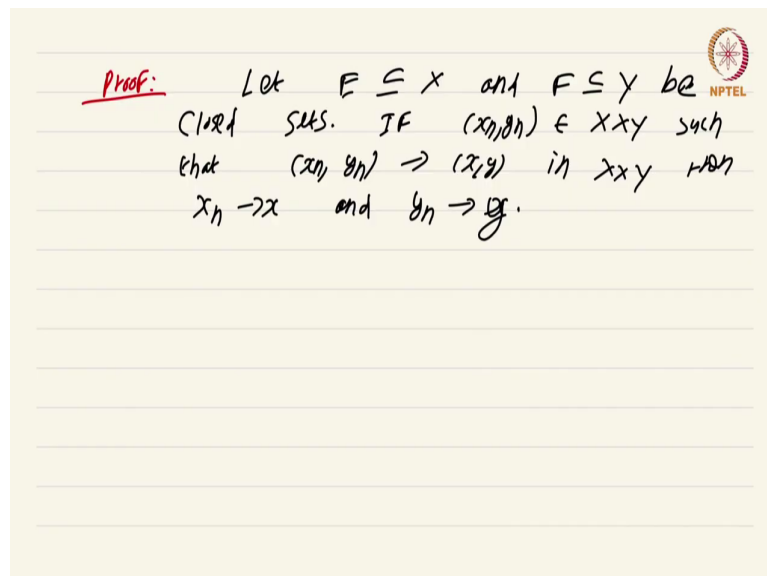 Proof: Let E ⊆ X and F ⊆ Y be
NPTEL
Closed sets. IF (xn,yn) ∈ X×Y such
that (xn, yn) → (x,y) in X×Y then
xn → x and yn → y.